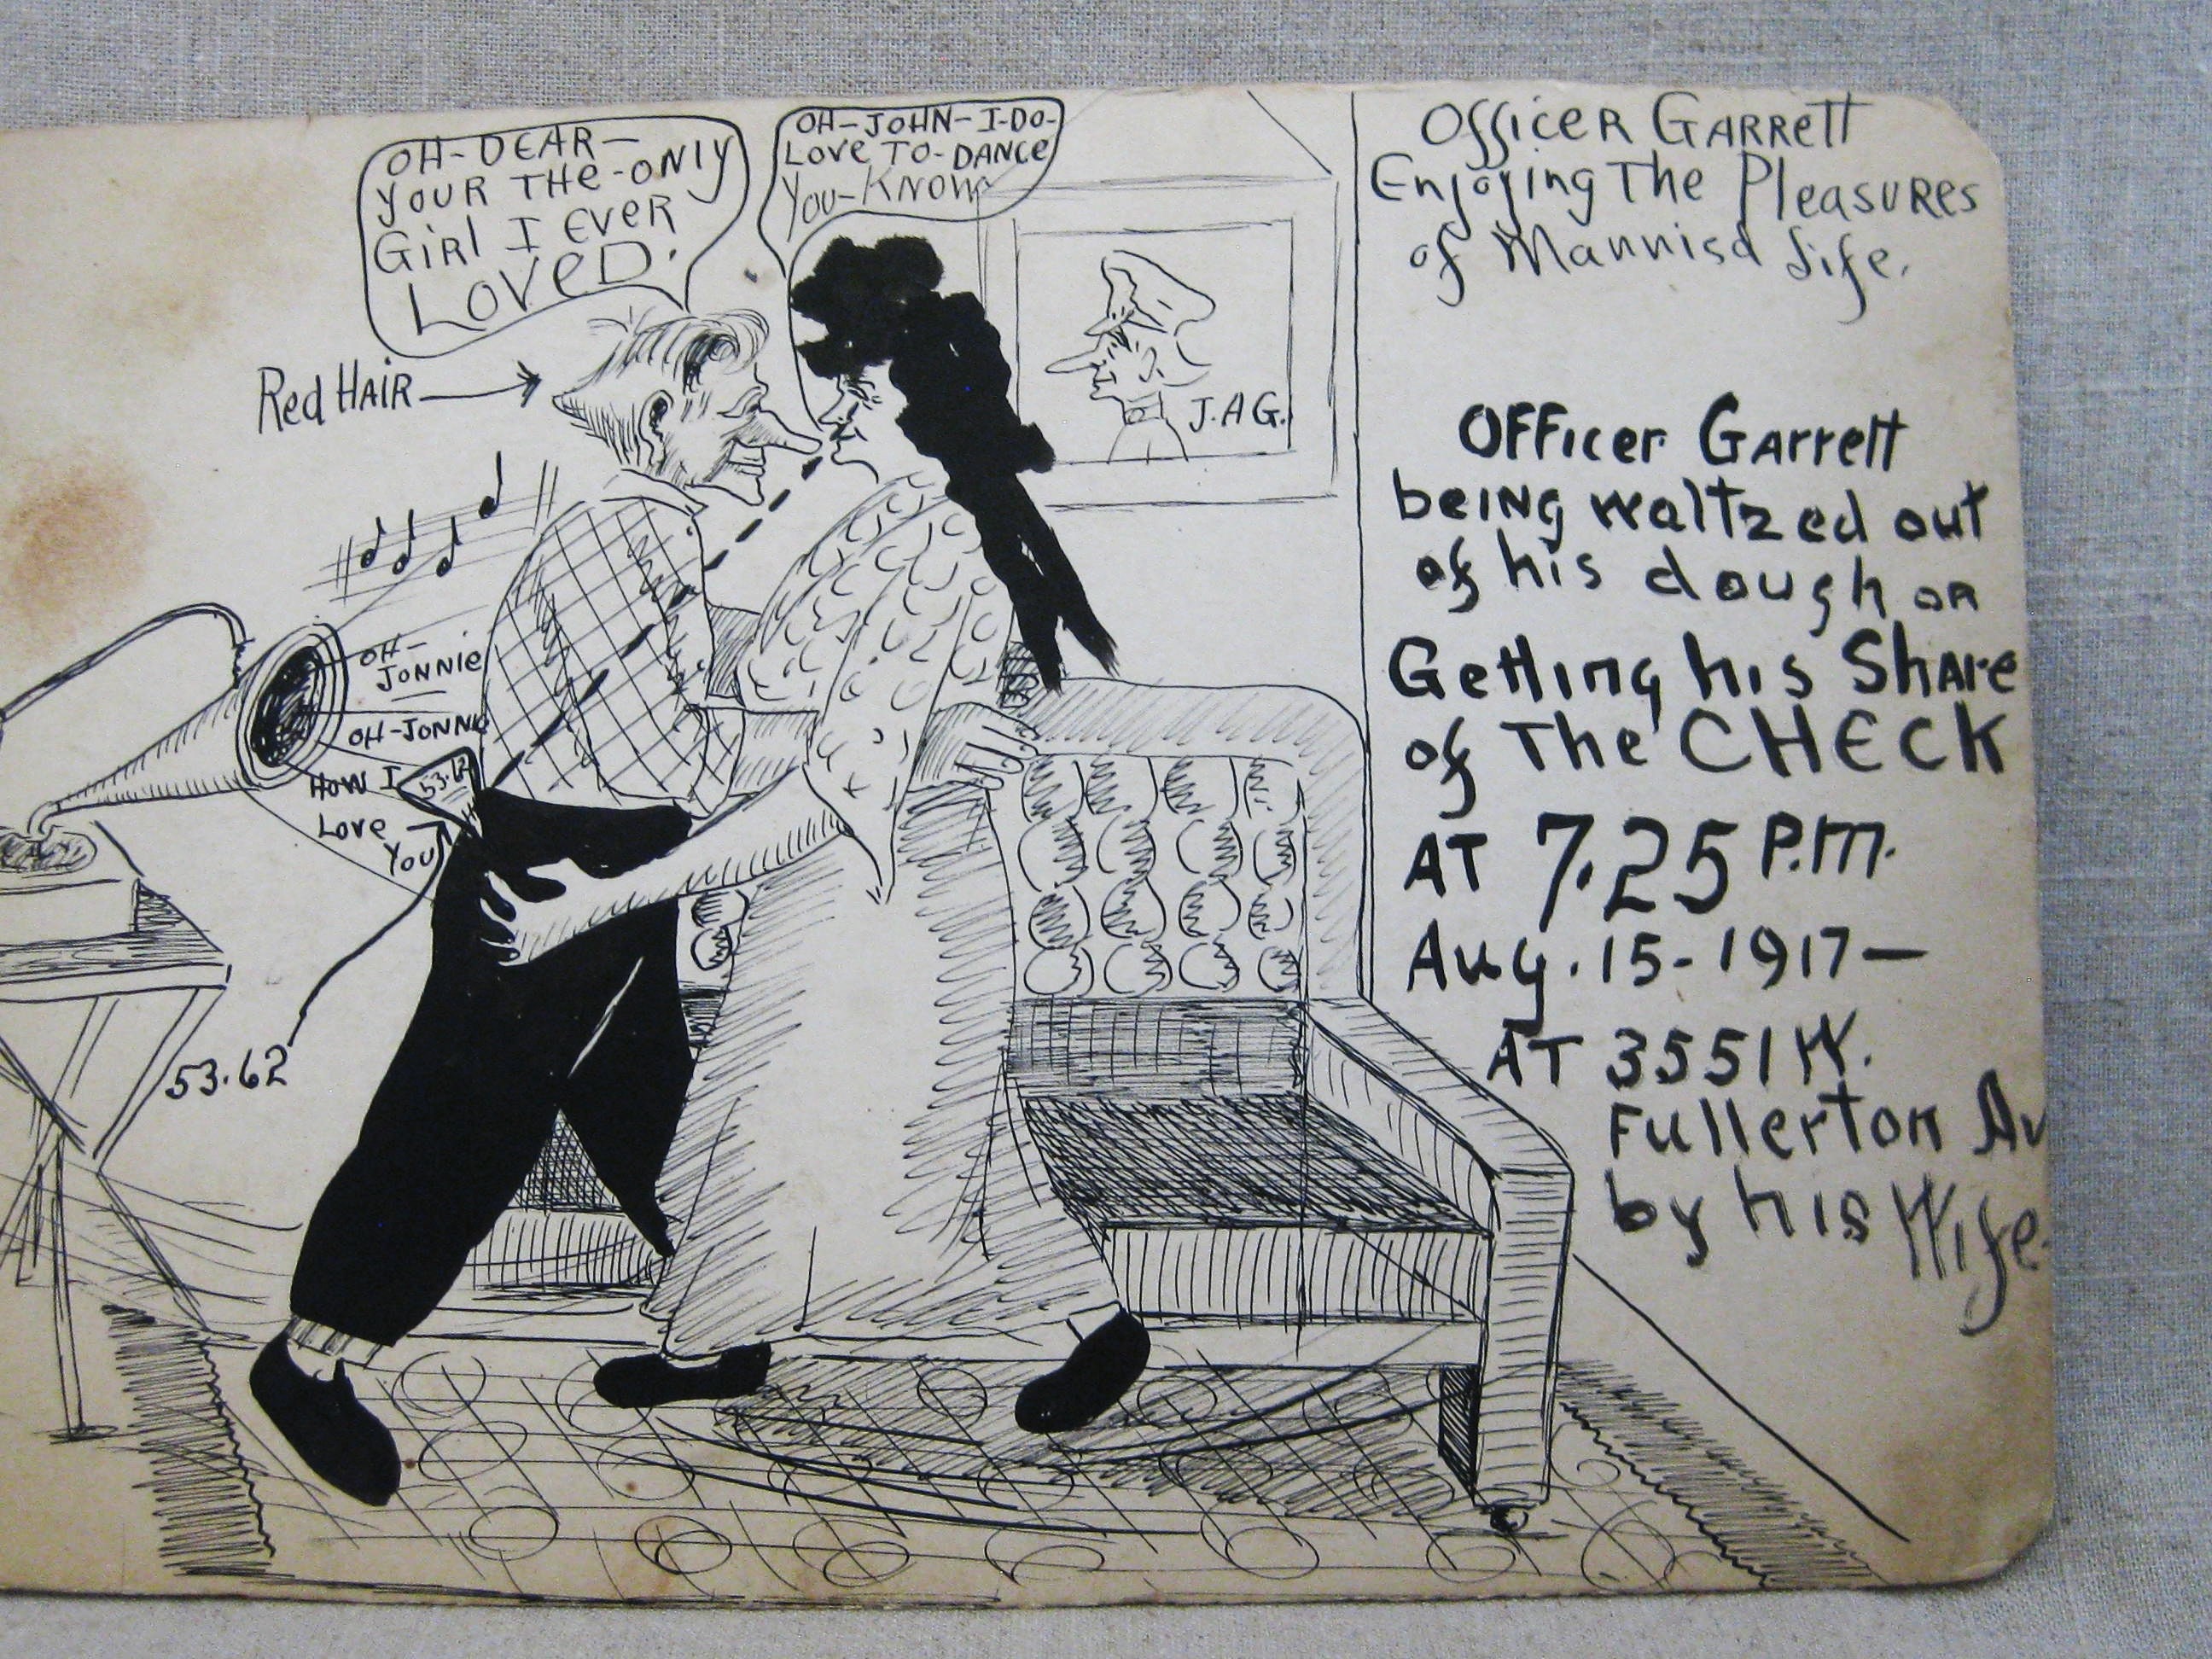 OH-DEAR-
YOUR THE-ONLY
GIRL I EVER
LOVED.
OH-JOHN-I-DO-
LOVE TO-DANCE
YOU-KNOW
Red HAIR
J.A.G.
OH-
JONNIE
OH-JONNIE
HOW I
LOVE
YOU
53.62
53.62
Officer Garrett
Enjoying The Pleasures
of Mannisd Life.
OFFicer Garrett
being waltzed out
of his dough or
Getting his Share
of The CHECK
AT 7.25 P.M.
Aug. 15-1917-
AT 3551 W.
Fullerton Av
by his Wife.